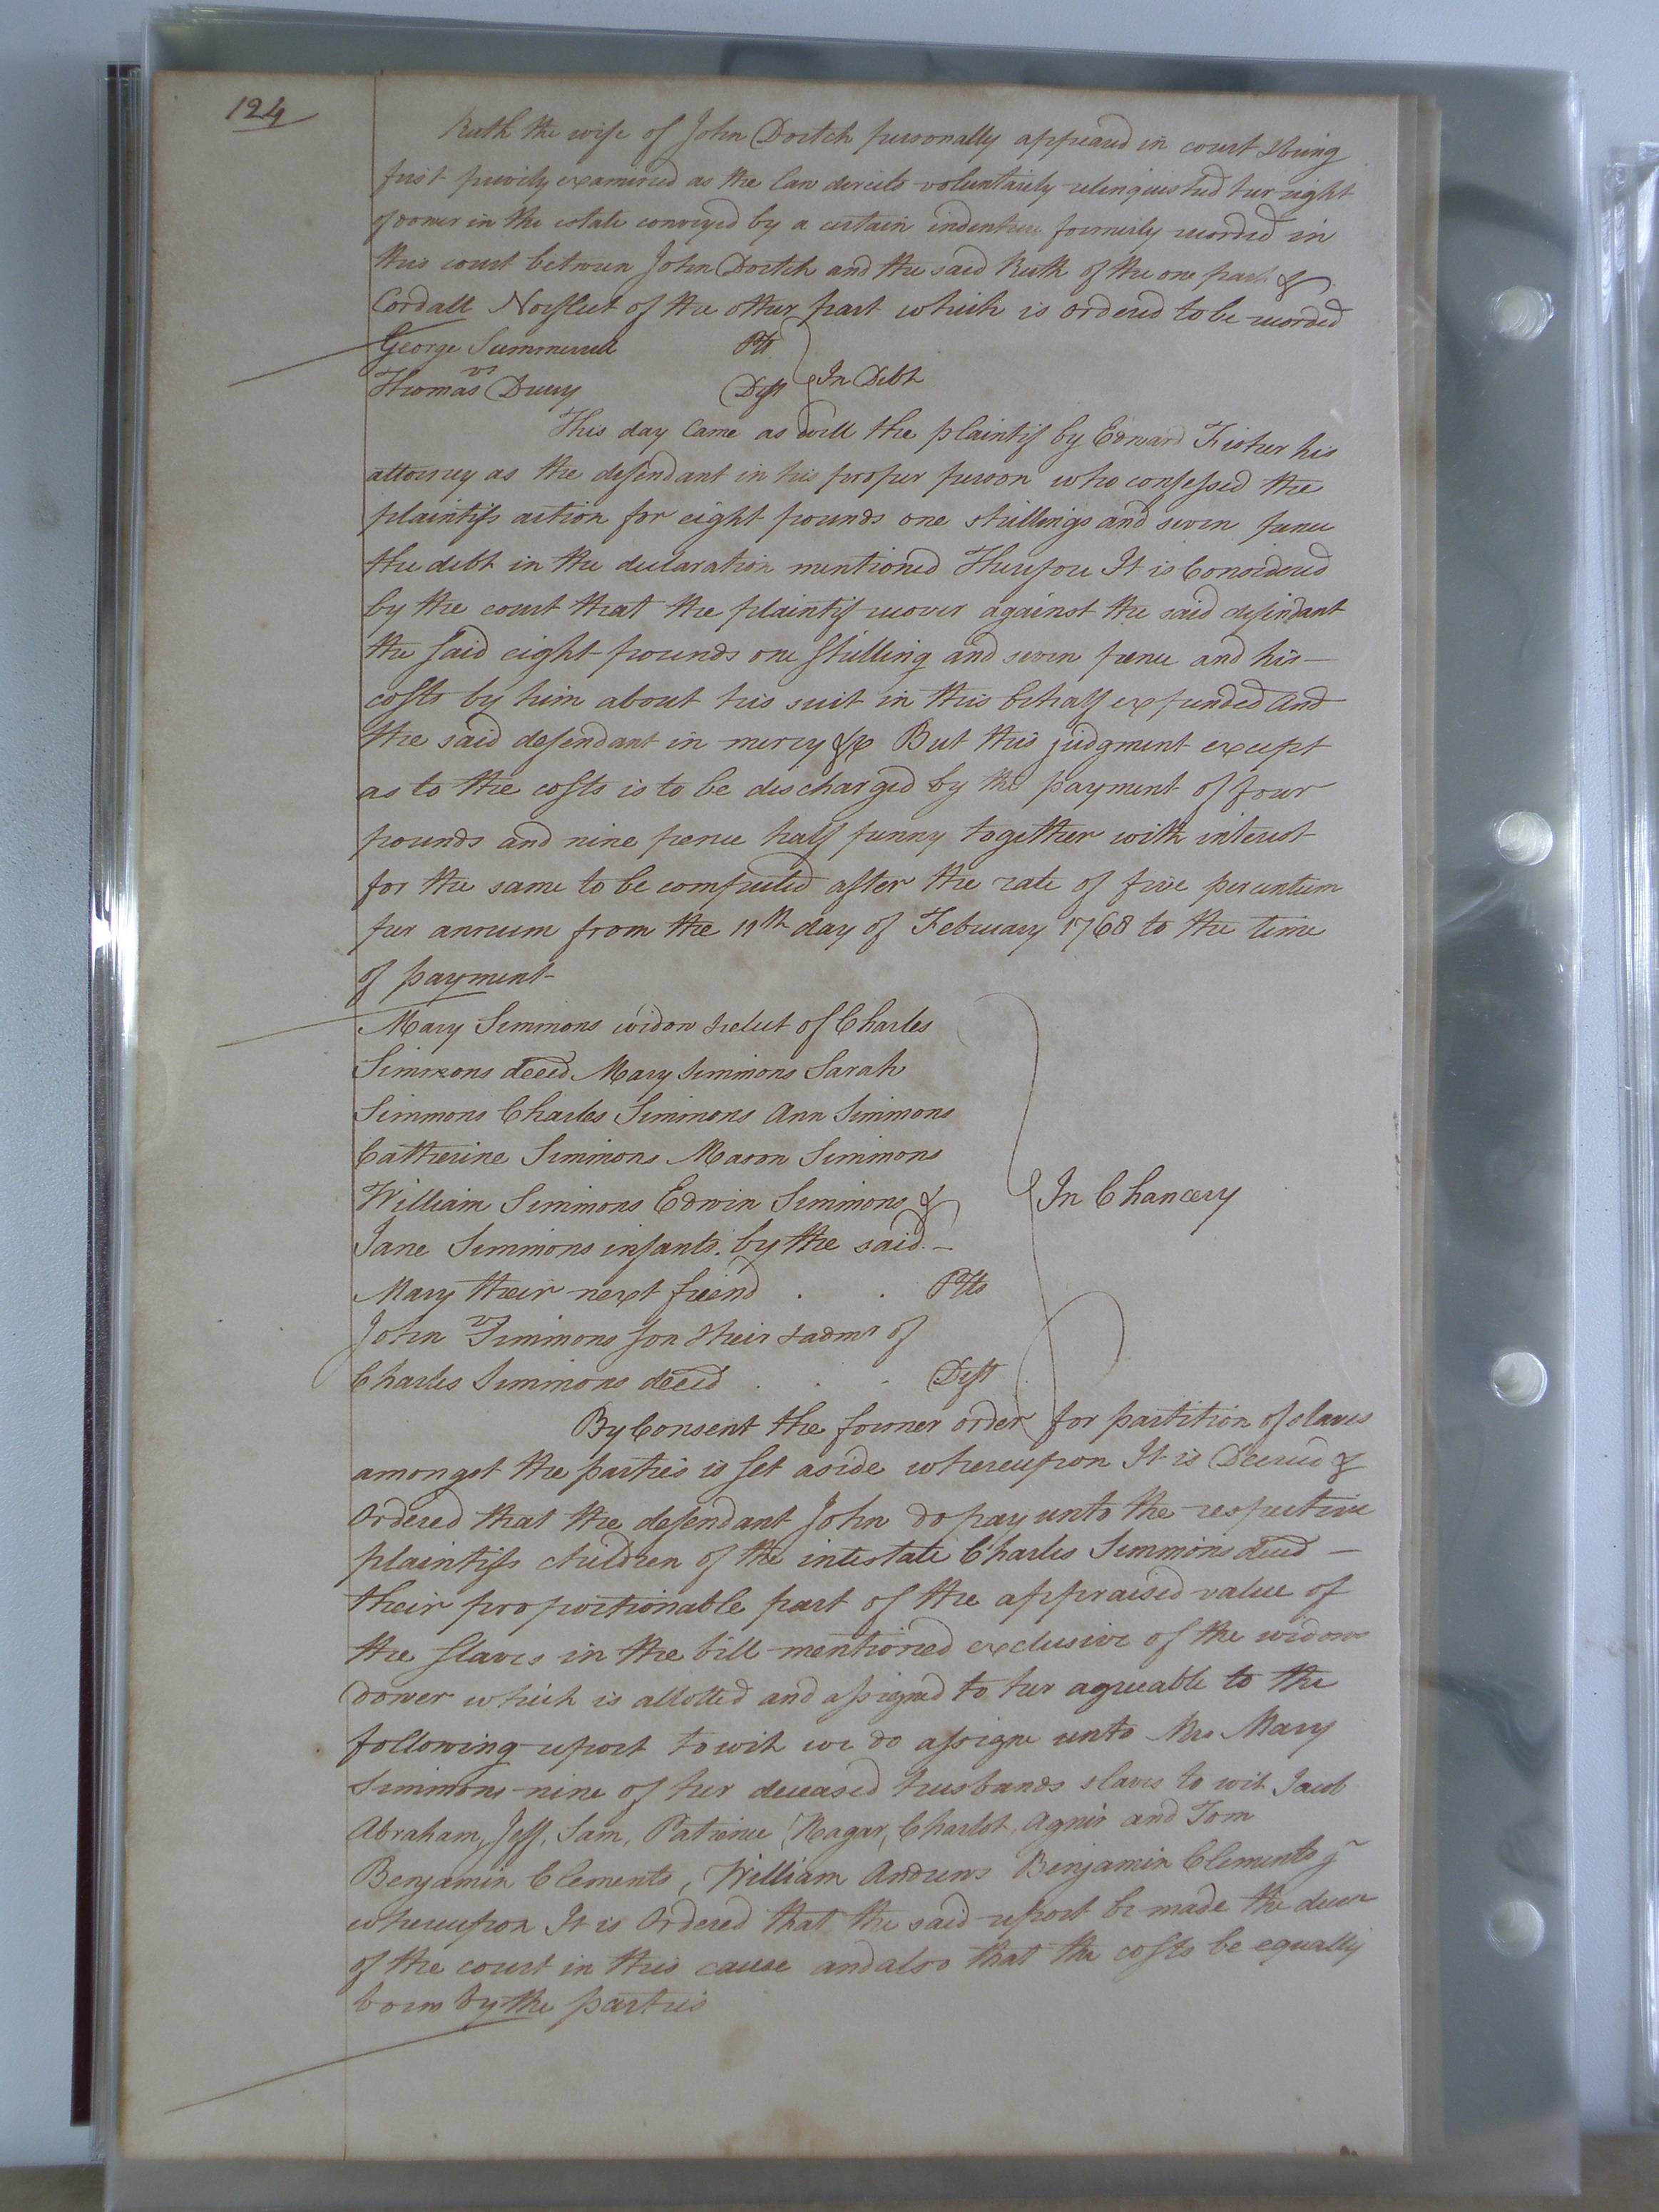 124
Ruth the wife of John Dortch personally appeared in court & being
first privily examined as the law directs voluntarily relenquished her right
of dower in the estate conveyed by a certain indenture formerly recorded in
this court between John Dortch and the said Ruth of the one part &
Cordall Norfleet of the other part which is ordered to be recorded
George Summerell Plt
vs
Thomas Drury Deft In Debt
This day Came as well the plaintif by Edward Fisher his
attorney as the defendant in his proper person who confessed the
plaintifs action for eight pounds one shillings and seven pence
the debt in the declaration mentioned Therefore It is Considered
by the court that the plaintif recover against the said defendant
the said eight pounds one shilling and seven pence and his
costs by him about his suit in this behalf expended And
the said defendant in mercy &c But this judgment except
as to the costs is to be discharged by the payment of four
pounds and nine pence half penny together with interest
for the same to be computed after the rate of five per centum
per annum from the 11th day of February 1768 to the time
of payment
Mary Simmons widow & relict of Charles
Simmons deced Mary Simmons Sarah
Simmons Charles Simmons Ann Simmons
Catherine Simmons Mason Simmons
William Simmons Edwin Simmons &
Jane Simmons infants by the said
Mary their next friend Plts
In Chancery
vs
John Simmons son & heir & admr of
Charles Simmons deced Deft
By Consent the former order for partition of slaves
amongst the parties is set aside whereupon It is Decreed &
Ordered that the defendant John do pay unto the respective
plaintifs children of the intestate Charles Simmons deced
their proportionable part of the appraised value of
the slaves in the bill mentioned exclusive of the widows
dower which is allotted and assigned to her agreeable to the
following report towit we do assign unto Mrs Mary
Simmons nine of her deceased husbands slaves to wit Jacob
Abraham, Jeff, Sam, Patience, Hagar, Charlot, Agnis and Tom
Benjamin Clements, William Andrews Benjamin Clements jr
whereupon It is Ordered that the said report be made the decree
of the court in this cause and also that the costs be equally
born by the parties